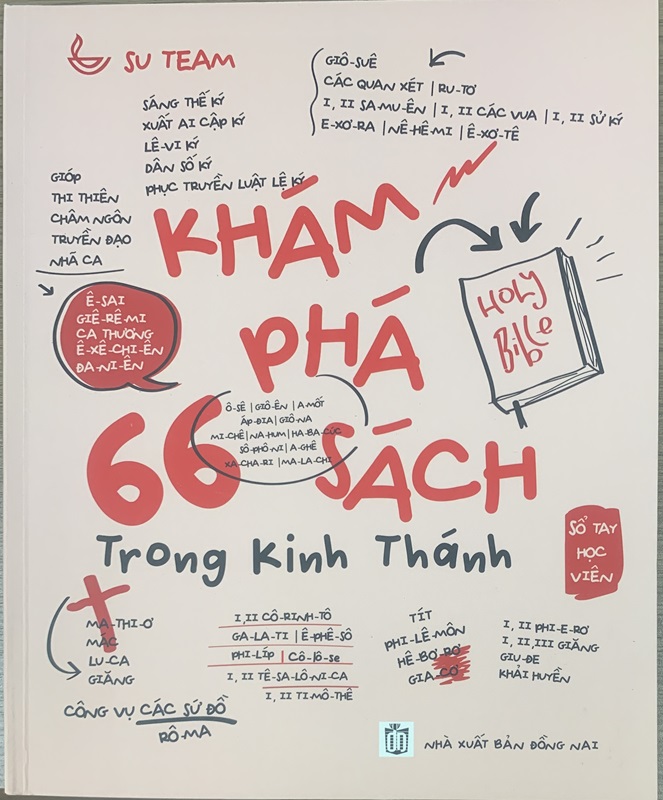 SU TEAM
GIÔ-SUÊ
CÁC QUAN XÉT | RU-TƠ
I, II SA-MU-ÊN | I, II CÁC VUA | I, II SỬ KÝ
E-XƠ-RA | NÊ-HÊ-MI | Ê-XƠ-TÊ
SÁNG THẾ KÝ
XUẤT AI CẬP KÝ
LÊ-VI KÝ
DÂN SỐ KÝ
PHỤC TRUYỀN LUẬT LỆ KÝ
GIÓP
THI THIÊN
CHÂM NGÔN
TRUYỀN ĐẠO
NHÃ CA
KHÁM
PHÁ
66 SÁCH
Trong Kinh Thánh
HOLY
Bible
Ê-SAI
GIÊ-RÊ-MI
CA THƯƠNG
Ê-XÊ-CHI-ÊN
ĐA-NI-ÊN
Ô-SÊ | GIÔ-ÊN | A-MỐT
ÁP-ĐIA | GIÔ-NA
MI-CHÊ | NA-HUM | HA-BA-CÚC
SÔ-PHÔ-NI | A-GHÊ
XA-CHA-RI | MA-LA-CHI
SỔ TAY
HỌC
VIÊN
MA-THI-Ơ
MÁC
LU-CA
GIĂNG
CÔNG VỤ CÁC SỨ ĐỒ
RÔ-MA
I, II CÔ-RINH-TÔ
GA-LA-TI | Ê-PHÊ-SÔ
PHI-LÍP | CÔ-LÔ-SE
I, II TÊ-SA-LÔ-NI-CA
I, II TI-MÔ-THÊ
TÍT
PHI-LÊ-MÔN
HÊ-BƠ-RƠ
GIA-CƠ
I, II PHI-E-RƠ
I, II, III GIĂNG
GIU-ĐE
KHẢI HUYỀN
NHÀ XUẤT BẢN ĐỒNG NAI